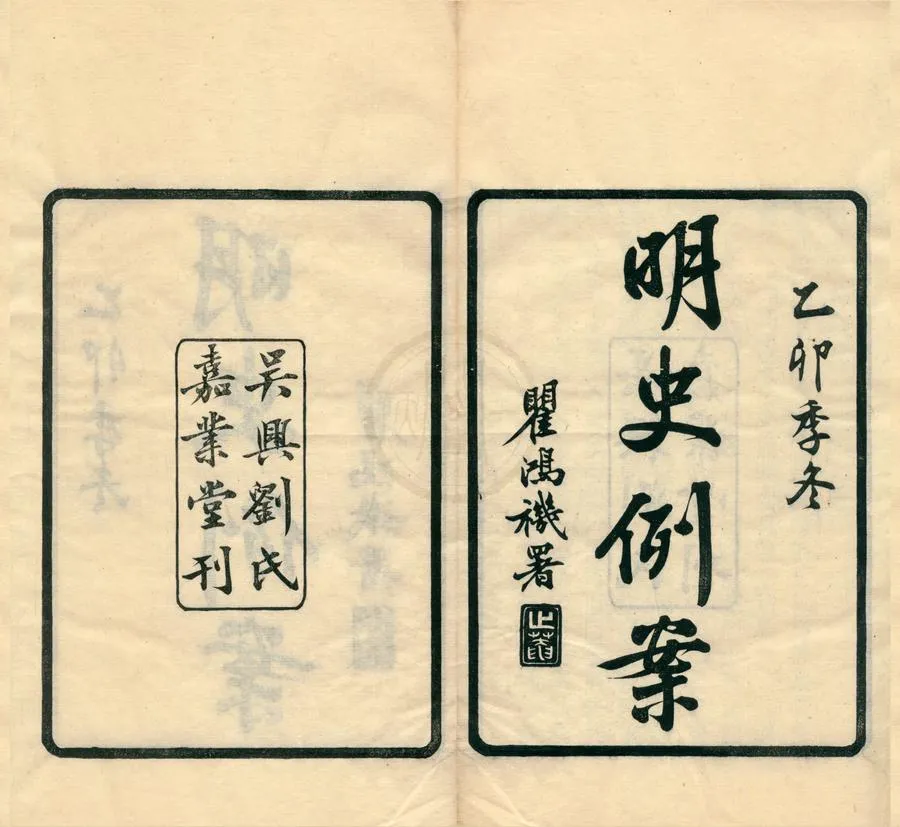 乙卯季冬
明史例案
瞿鴻禨署
止菴
吳興劉氏
嘉業堂刊